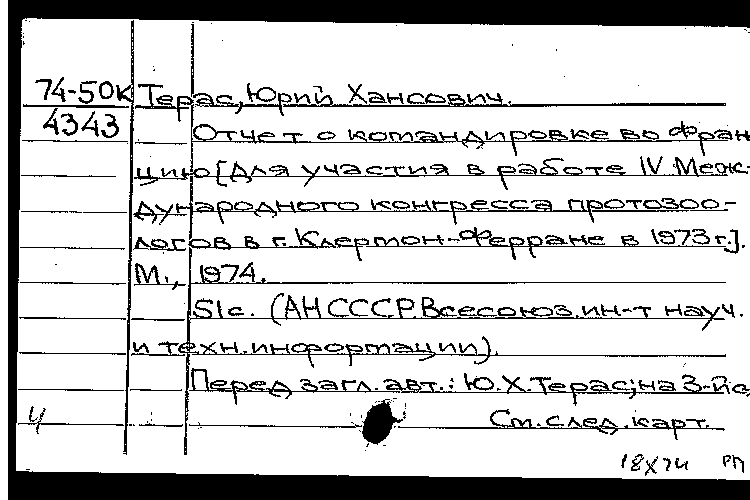 74-50к Терас, Юрий Хансович.
4343 Отчет о командировке во Фран
цию [Для участия в работе IV Меж-
дународного конгресса протозоо-
логов в г. Клермон-Ферране в 1973 г.].
М., 1974.
51с. (АН СССР. Всесоюз. ин-т науч.
и техн. информации).
Перед загл. авт.: Ю.Х. Терас; на 3-й с
Ч См. след. карт.
18X74 РП